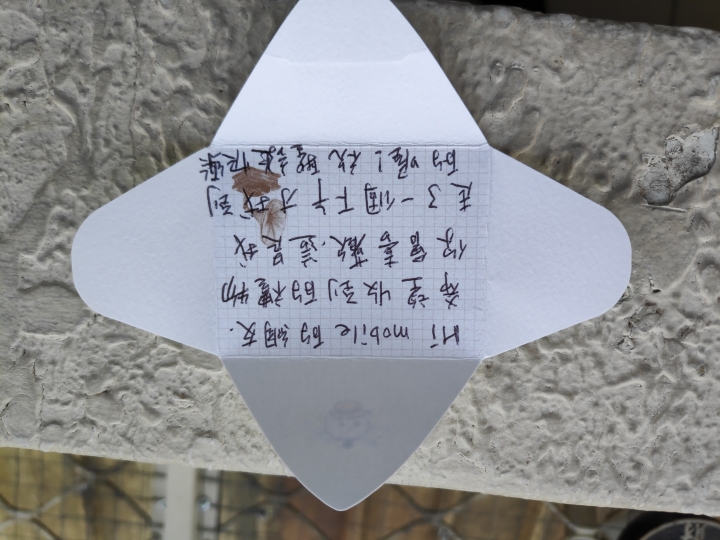 Hi mobile 的網友.
希望收到的禮物
你會喜歡.這是我
走了一個下午才找到
的喔!祝聖誕快樂